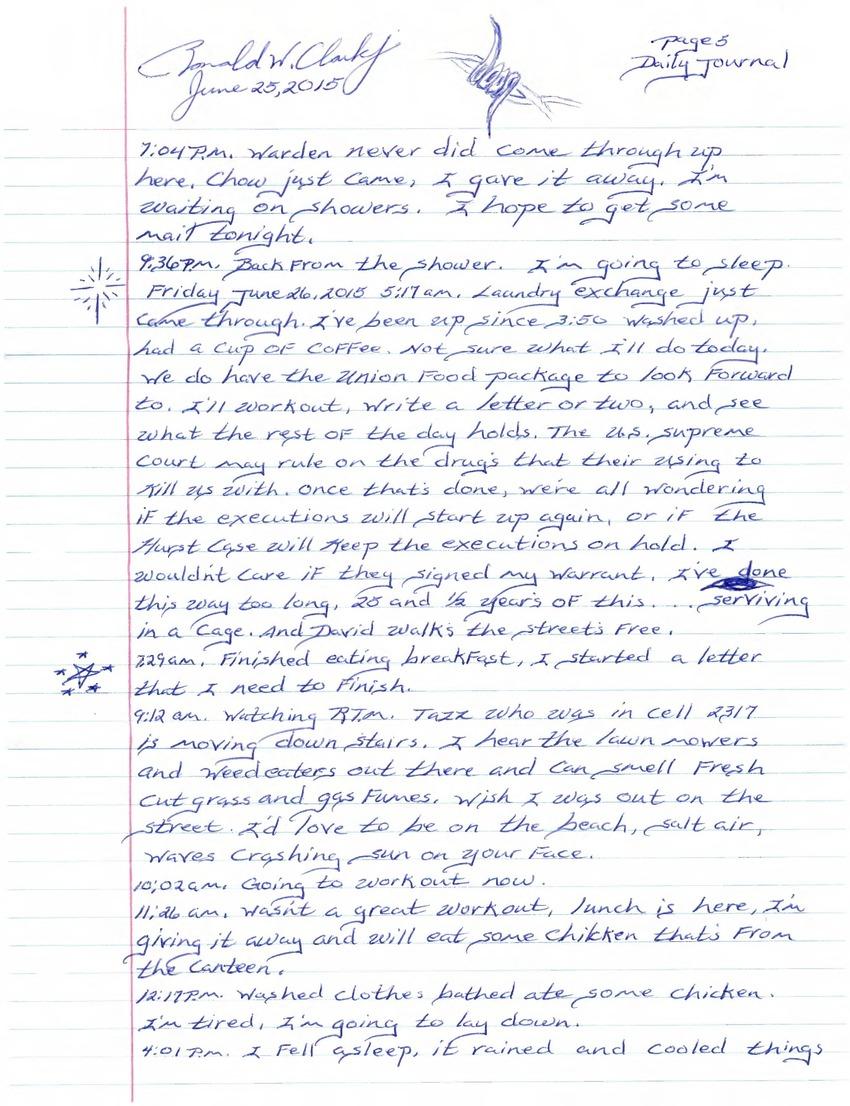 Ronald W. Clark Jr
June 25, 2015
page 5
Daily Journal
7:04 P.m. Warden never did come through up
here. Chow just came, I gave it away. I'm
waiting on showers. I hope to get some
mail tonight.
9:36 P.m. Back From the shower. I'm going to sleep.
Friday June 26, 2015 5:17 am. Laundry exchange just
came through. I've been up since 3:50 washed up,
had a cup OF CoFFee. Not sure what I'll do today.
We do have the Union Food package to look Forward
to. I'll workout, write a letter or two, and see
what the rest OF the day holds. The U.S. supreme
Court may rule on the drug's that their using to
Kill us with. Once that's done, we're all wondering
iF the executions will start up again, or iF the
Hurst Case will Keep the executions on hold. I
wouldn't care iF they signed my warrant. I've done
this way too long, 25 and 1/2 year's OF this.... serviving
in a cage. And David walk's the street's Free.
7:29 am. Finished eating breakFast, I started a letter
that I need to Finish.
9:12 am. Watching R.T.M. Tazz who was in cell 2317
is moving down stairs. I hear the lawn mowers
and weedeaters out there and can smell Fresh
cut grass and gas Fumes. Wish I was out on the
street. I'd love to be on the beach, salt air,
waves crashing sun on your Face.
10:02 am. Going to workout now.
11:26 am. Wasn't a great workout, lunch is here, I'm
giving it away and will eat some chicken that's From
the canteen.
12:17 P.m. Washed clothes bathed ate some chicken.
I'm tired, I'm going to lay down.
4:01 P.m. I Fell asleep, it rained and cooled things